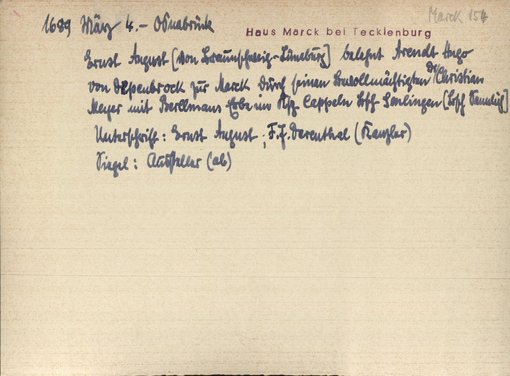 Marck 154
1689 März 4. - Osnabrück
Haus Marck bei Tecklenburg
Ernst August [von Braunschweig-Lüneburg] belehnt Arendt Hugo
von Dipenbrock zur Marck durch seinen Bevollmächtigten Dr Christian
Meyer mit Bertlmans Erbe im Ksp. Cappeln Bsch.
Unterschrift: Ernst August, F. J. Derenthal (Kanzler)
Siegel: Aussteller (ab)